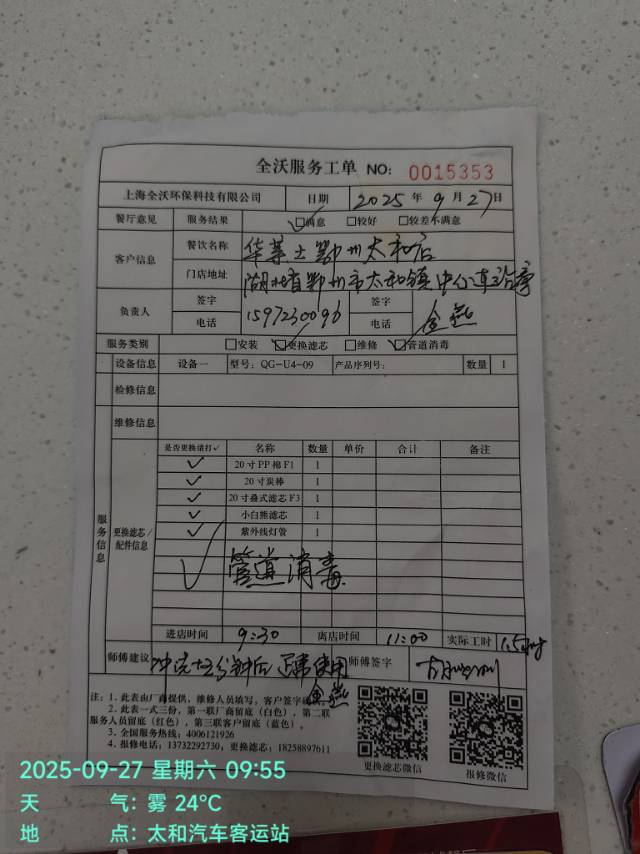 全沃服务工单 NO: 0015353
上海全沃环保科技有限公司 日期 2025 年 9 月 27 日
餐厅意见 服务结果 ☑满意 □较好 □较差不满意
客户信息 餐饮名称 华莱士鄂州太和店
门店地址 湖北省鄂州市太和镇中心
负责人 签字 签字
电话 1597230096 电话 金燕
服务类别 □安装 ☑更换滤芯 □维修 ☑管道消毒
设备信息 设备一 型号: QG-U4-09 产品序列号: 数量 1
检修信息
维修信息
服务信息
更换滤芯/配件信息
是否更换请打✓ 名称 数量 单价 合计 备注
✓ 20寸PP棉F1 1
✓ 20寸炭棒 1
✓ 20寸叠式滤芯F3 1
✓ 小白熊滤芯 1
✓ 紫外线灯管 1
✓ 管道消毒
进店时间 9:30 离店时间 11:00 实际工时 1.5
师傅建议 冲洗十五分钟后正常使用 师傅签字
金燕
注: 1. 此表由厂商提供, 维修人员填写, 客户签字
2. 此表一式三份, 第一联厂商留底(白色), 第二联
服务人员留底(红色), 第三联客户留底(蓝色),
3. 全国服务热线: 4006121926
4. 报修电话: 13732292730, 更换滤芯: 18258897611
更换滤芯微信 报修微信
2025-09-27 星期六 09:55
天 气: 雾 24℃
地 点: 太和汽车客运站